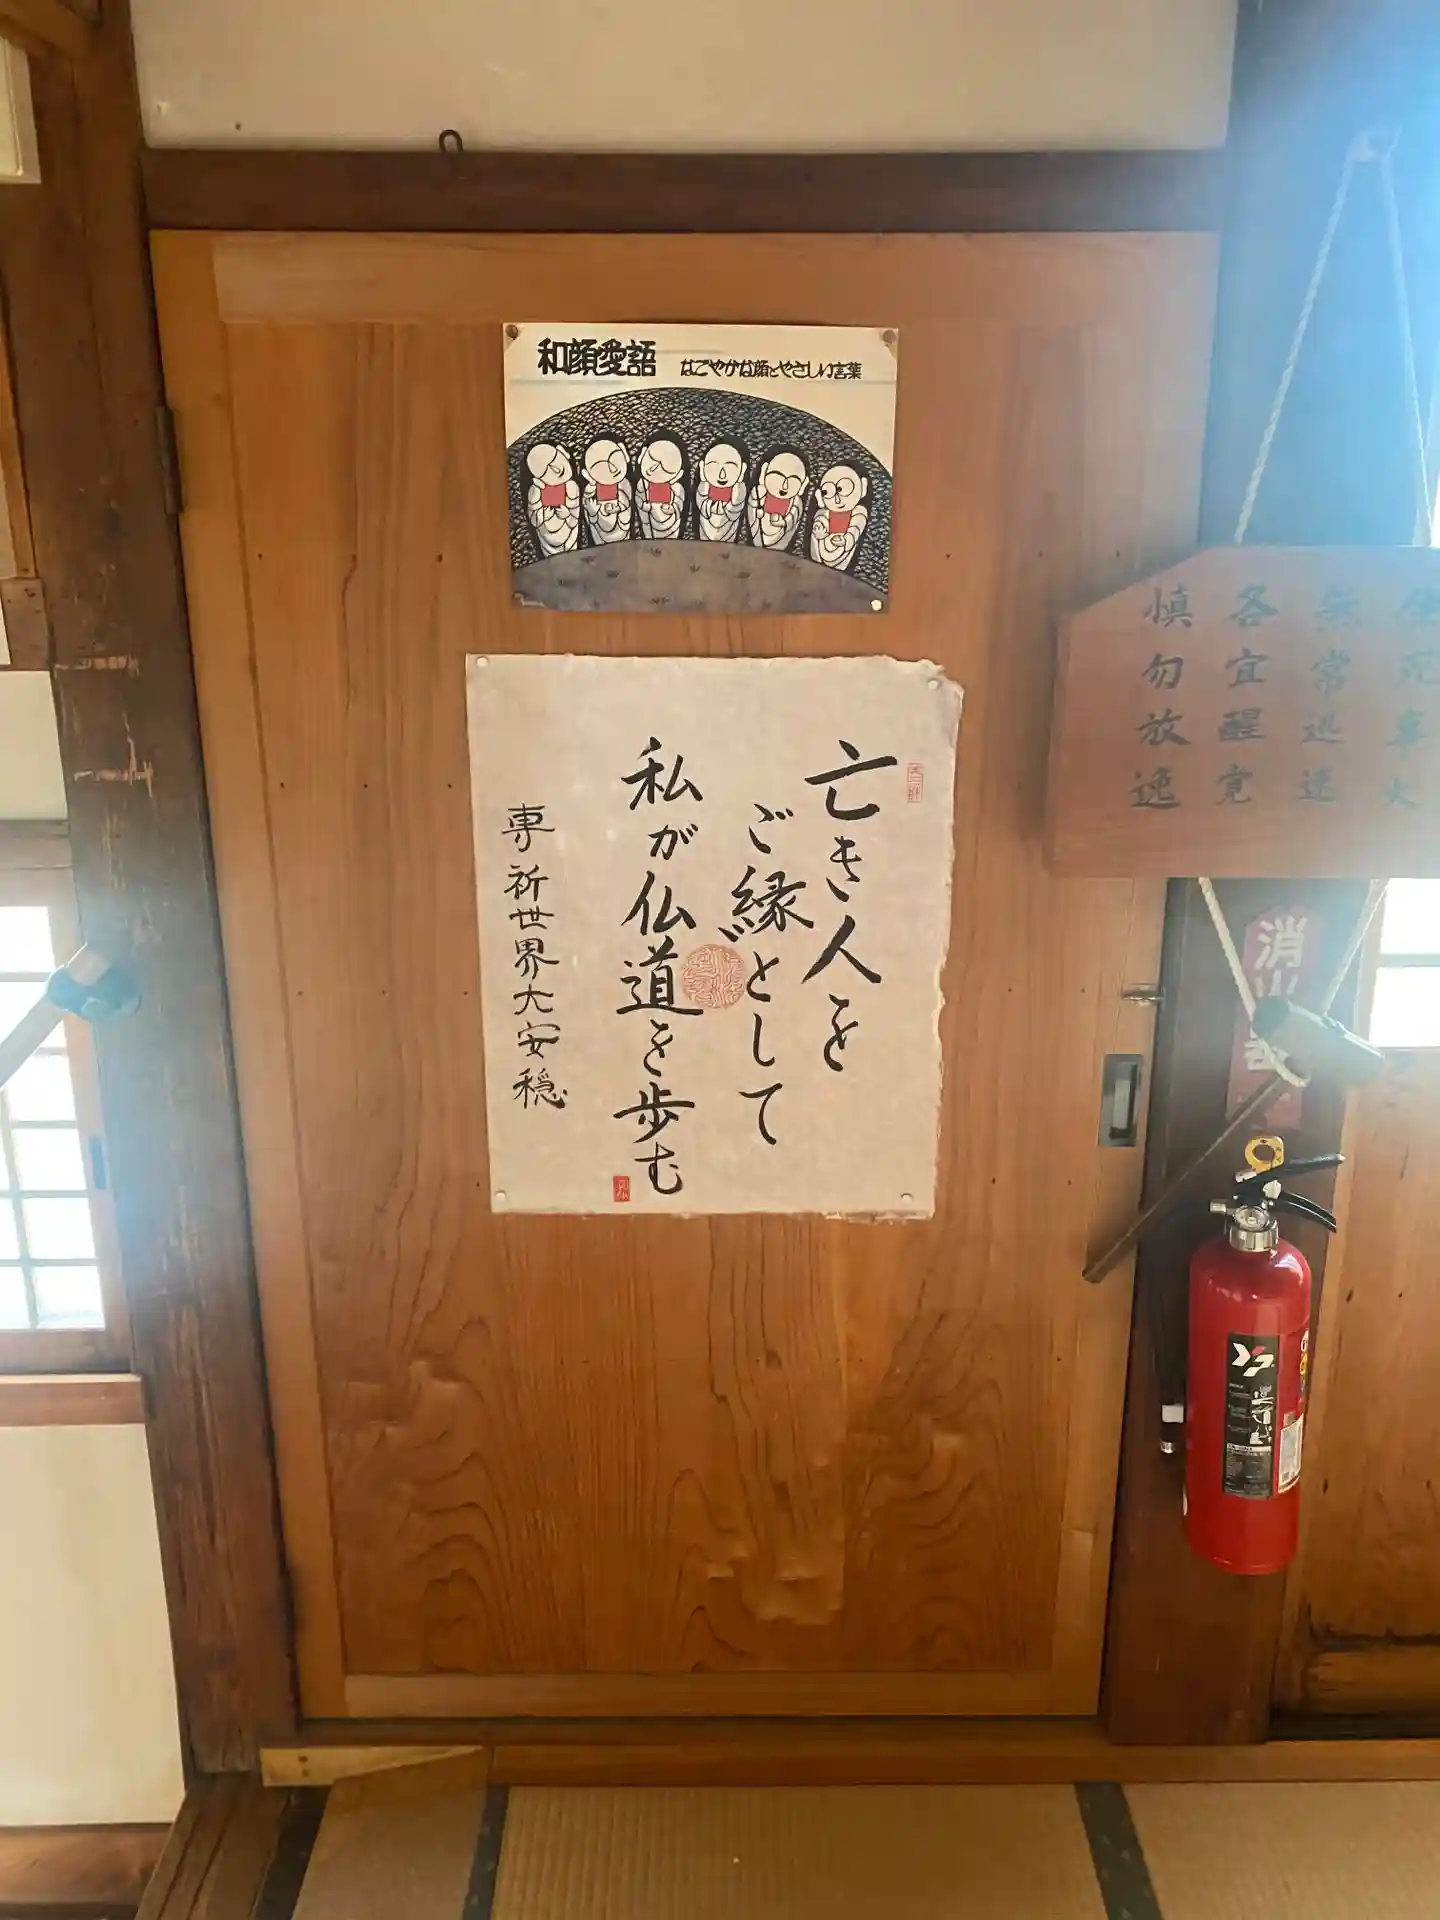 和顔愛語 なごやかな顔とやさしい言葉
亡き人を
ご縁として
私が仏道を歩む
専祈世界大安穏
生死事大
無常迅速
各宜醒覚
慎勿放逸
消火器